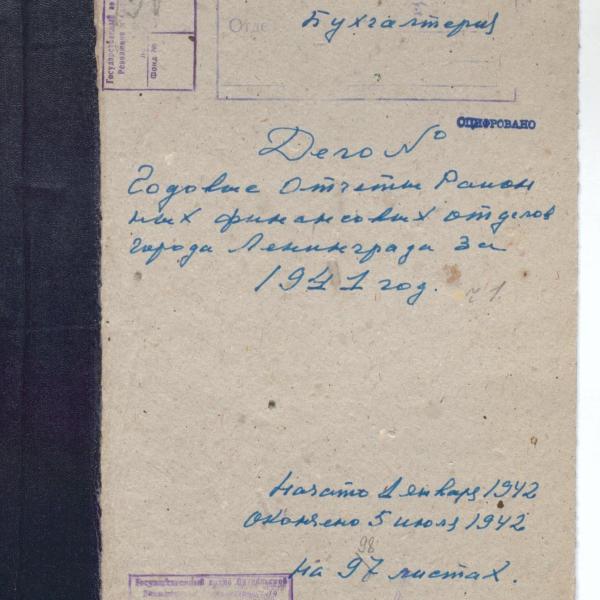 Государственный
Революции
Фонд №
Отде
Бухгалтерия
ОЦИФРОВАНО
Дело №
Годовые отчеты Район
ных финансовых отделов
города Ленинграда за
1941 год.
ч 1.
Начато 2 января 1942
Окончено 5 июля 1942
98
На 97 листах.
Государственный архив Октябрьской